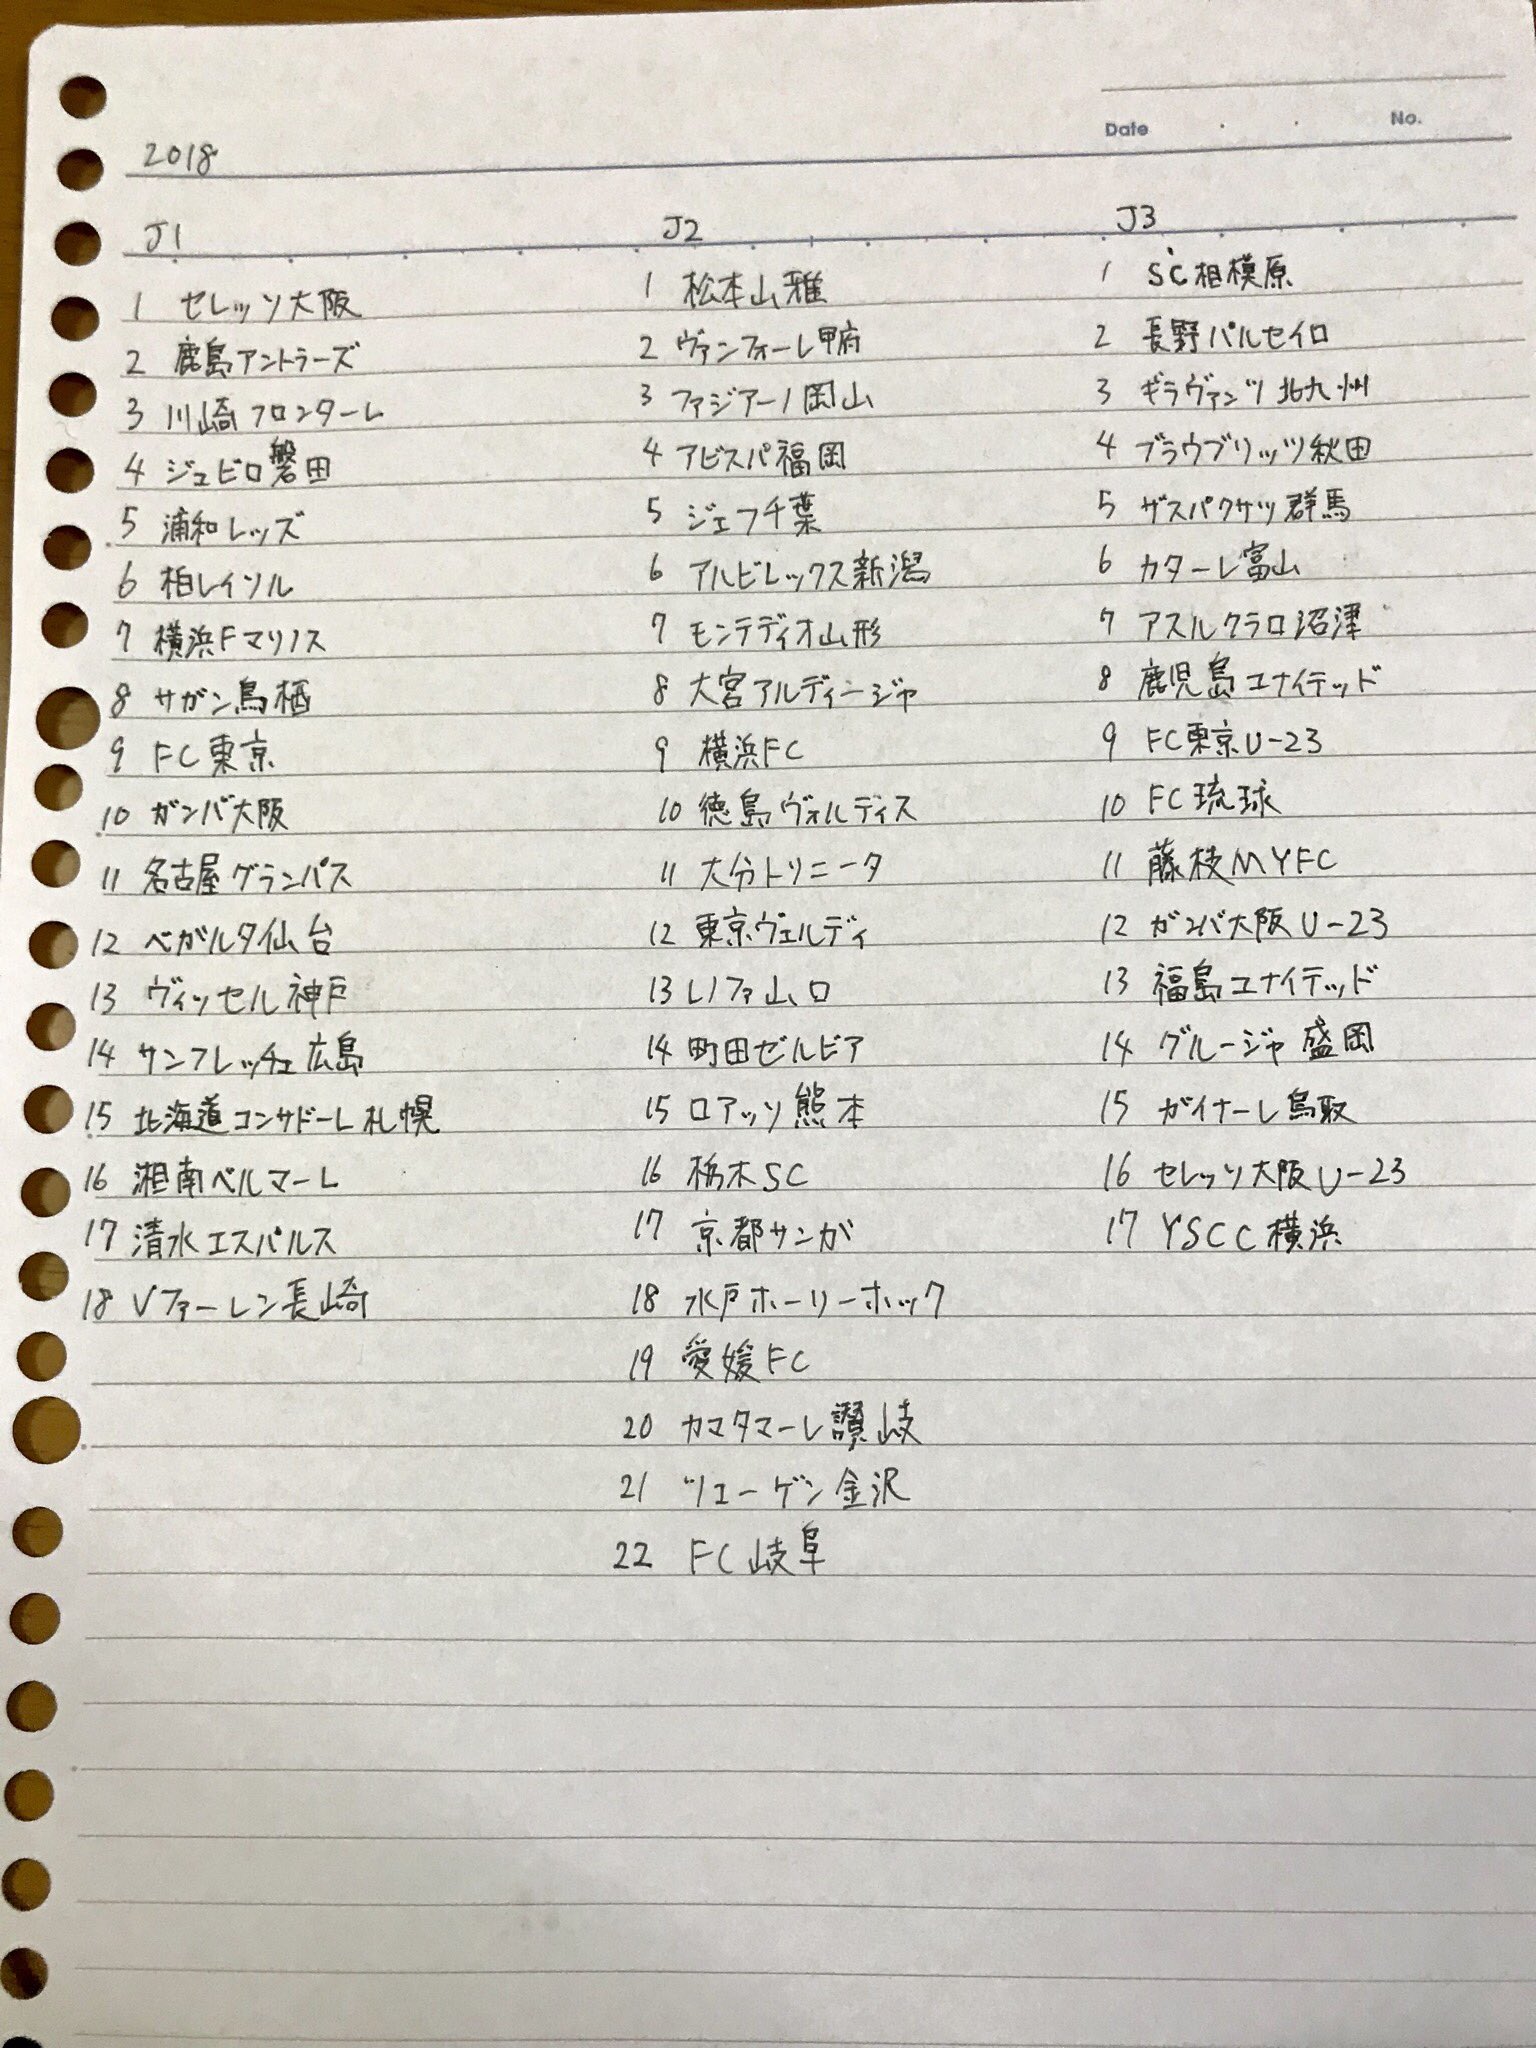 Date . . No.
2018
J1 J2 J3
1 セレッソ大阪 1 松本山雅 1 SC相模原
2 鹿島アントラーズ 2 ヴァンフォーレ甲府 2 長野パルセイロ
3 川崎フロンターレ 3 ファジアーノ岡山 3 ギラヴァンツ北九州
4 ジュビロ磐田 4 アビスパ福岡 4 ブラウブリッツ秋田
5 浦和レッズ 5 ジェフ千葉 5 ザスパクサツ群馬
6 柏レイソル 6 アルビレックス新潟 6 カターレ富山
7 横浜Fマリノス 7 モンテディオ山形 7 アスルクラロ沼津
8 サガン鳥栖 8 大宮アルディージャ 8 鹿児島ユナイテッド
9 FC東京 9 横浜FC 9 FC東京U-23
10 ガンバ大阪 10 徳島ヴォルティス 10 FC琉球
11 名古屋グランパス 11 大分トリニータ 11 藤枝MYFC
12 ベガルタ仙台 12 東京ヴェルディ 12 ガンバ大阪U-23
13 ヴィッセル神戸 13 レノファ山口 13 福島ユナイテッド
14 サンフレッチェ広島 14 町田ゼルビア 14 グルージャ盛岡
15 北海道コンサドーレ札幌 15 ロアッソ熊本 15 ガイナーレ鳥取
16 湘南ベルマーレ 16 栃木SC 16 セレッソ大阪U-23
17 清水エスパルス 17 京都サンガ 17 YSCC横浜
18 Vファーレン長崎 18 水戸ホーリーホック
19 愛媛FC
20 カマタマーレ讃岐
21 ツエーゲン金沢
22 FC岐阜